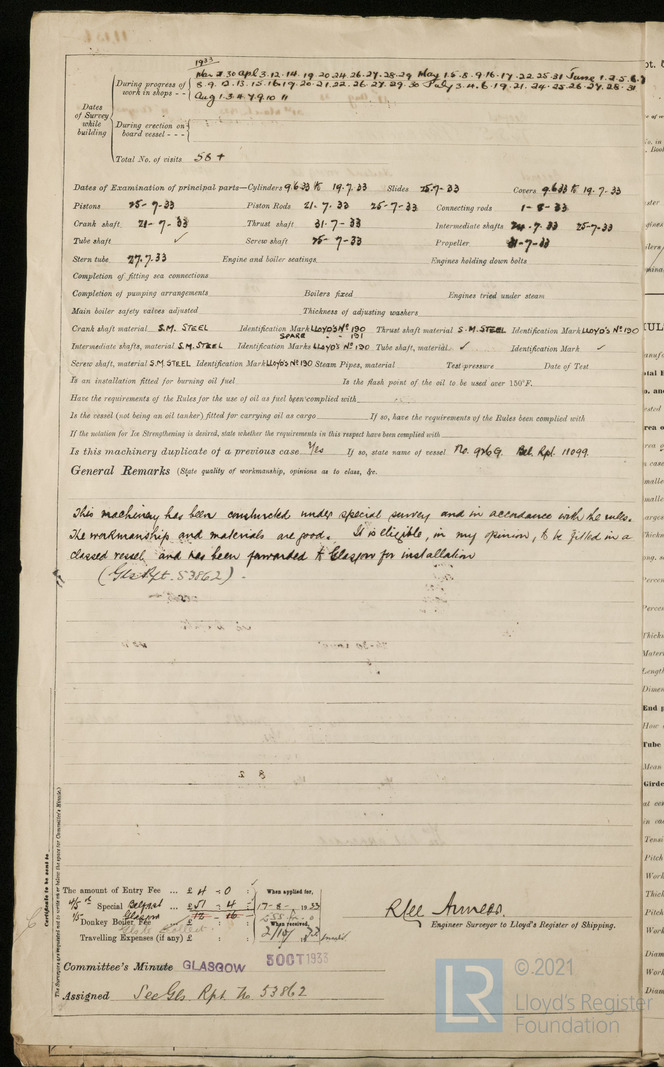 1933
During progress of work in shops - -
Mar 30 Apl 3. 12. 14. 19. 20. 24. 26. 27. 28. 29 May 1. 5. 8. 9. 16. 17. 22. 25. 31 June 1. 2. 5. 6. 7
8. 9. 12. 13. 15. 16. 19. 20. 21. 22. 26. 27. 29. 30 July 3. 4. 6. 19. 21. 24. 25. 26. 27. 28. 31
Aug 1. 3. 4. 7. 9. 10. 11
Dates of Survey while building
During erection on board vessel - - -
Total No. of visits 58 +
Dates of Examination of principal parts—Cylinders 9.6.33 to 19.7.33 Slides 25-7-33 Covers 9.6.33 to 19.7.33
Pistons 25-7-33 Piston Rods 21.7.33 25-7-33 Connecting rods 1-8-33
Crank shaft 21-7-33 Thrust shaft 31.7-33 Intermediate shafts 7.33 25-7-33
Tube shaft ✓ Screw shaft 25-7-33 Propeller 31-7-33
Stern tube 27.7.33 Engine and boiler seatings Engines holding down bolts
Completion of fitting sea connections
Completion of pumping arrangements Boilers fixed Engines tried under steam
Main boiler safety valves adjusted Thickness of adjusting washers
Crank shaft material S.M. STEEL Identification Mark LLOYD'S No 190 Thrust shaft material S.M. STEEL Identification Mark LLOYD'S No 190
SPARE " " 191
Intermediate shafts, material S.M. STEEL Identification Marks LLOYD'S No 190 Tube shaft, material ✓ Identification Mark ✓
Screw shaft, material S.M STEEL Identification Mark LLOYD'S No 190 Steam Pipes, material Test pressure Date of Test
Is an installation fitted for burning oil fuel Is the flash point of the oil to be used over 150°F.
Have the requirements of the Rules for the use of oil as fuel been complied with
Is the vessel (not being an oil tanker) fitted for carrying oil as cargo If so, have the requirements of the Rules been complied with
If the notation for Ice Strengthening is desired, state whether the requirements in this respect have been complied with
Is this machinery duplicate of a previous case Yes If so, state name of vessel No. 9869. Bel. Rpt. 11099
General Remarks (State quality of workmanship, opinions as to class, &c.
This machinery has been constructed under special survey and in accordance with the rules.
The workmanship and materials are good. It is eligible, in my opinion, to be fitted in a
classed vessel and has been forwarded to Glasgow for installation
(Gls Rpt. 53862).
Certificate to be sent to
The Surveyors are requested not to write on or below the space for Committee's Minute.
The amount of Entry Fee ... £ 4 : 0 : When applied for,
4/5 Special Belfast ... £ 51 : 4 : 17-8-1933
1/5 Glasgow 12 - 16
Donkey Boiler Fee ... £ : : When received,
Travelling Expenses (if any) £ : : 2/10/33
Engineer Surveyor to Lloyd's Register of Shipping.
Committee's Minute GLASGOW 3 OCT 1933
Assigned See Gls. Rpt. No 53862
© 2021
LR
Lloyd's Register
Foundation